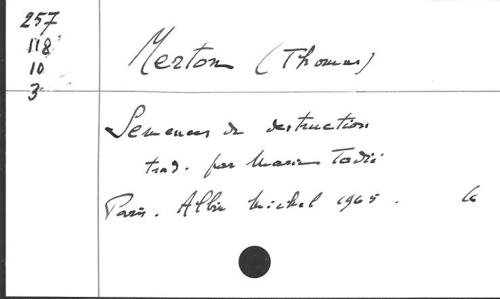 257
118
10
3
Merton (Thomas)
Semences de destruction
trad. par Marie Tadié
Paris. Albin Michel 1965.